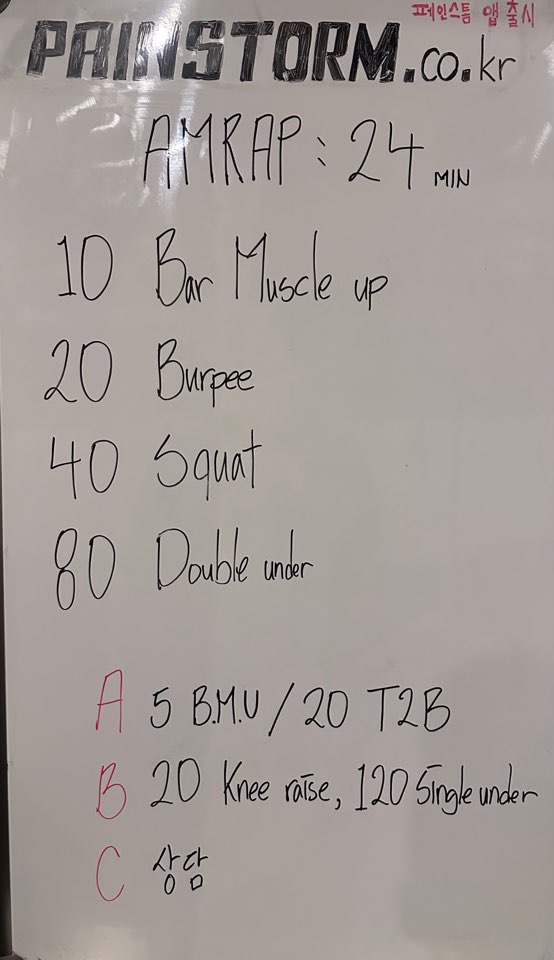 페인스톰 앱 출시
PAINSTORM.co.kr
AMRAP : 24 MIN
10 Bar Muscle up
20 Burpee
40 Squat
80 Double under
A 5 B.M.U / 20 T2B
B 20 Knee raise, 120 Single under
C 상담